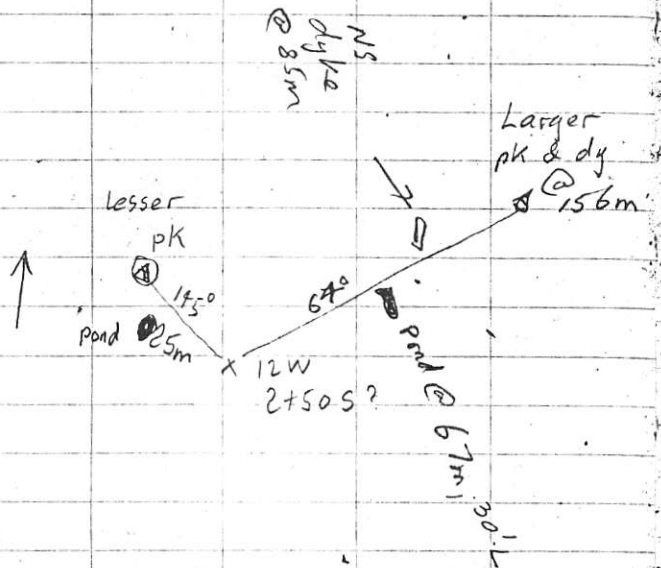 NS
dyke
@ 85m
Larger
pk & dy
@
156m
Lesser
pk
145°
64°
pond
25m
12W
2+50 S?
pond @ 67m, 30'L